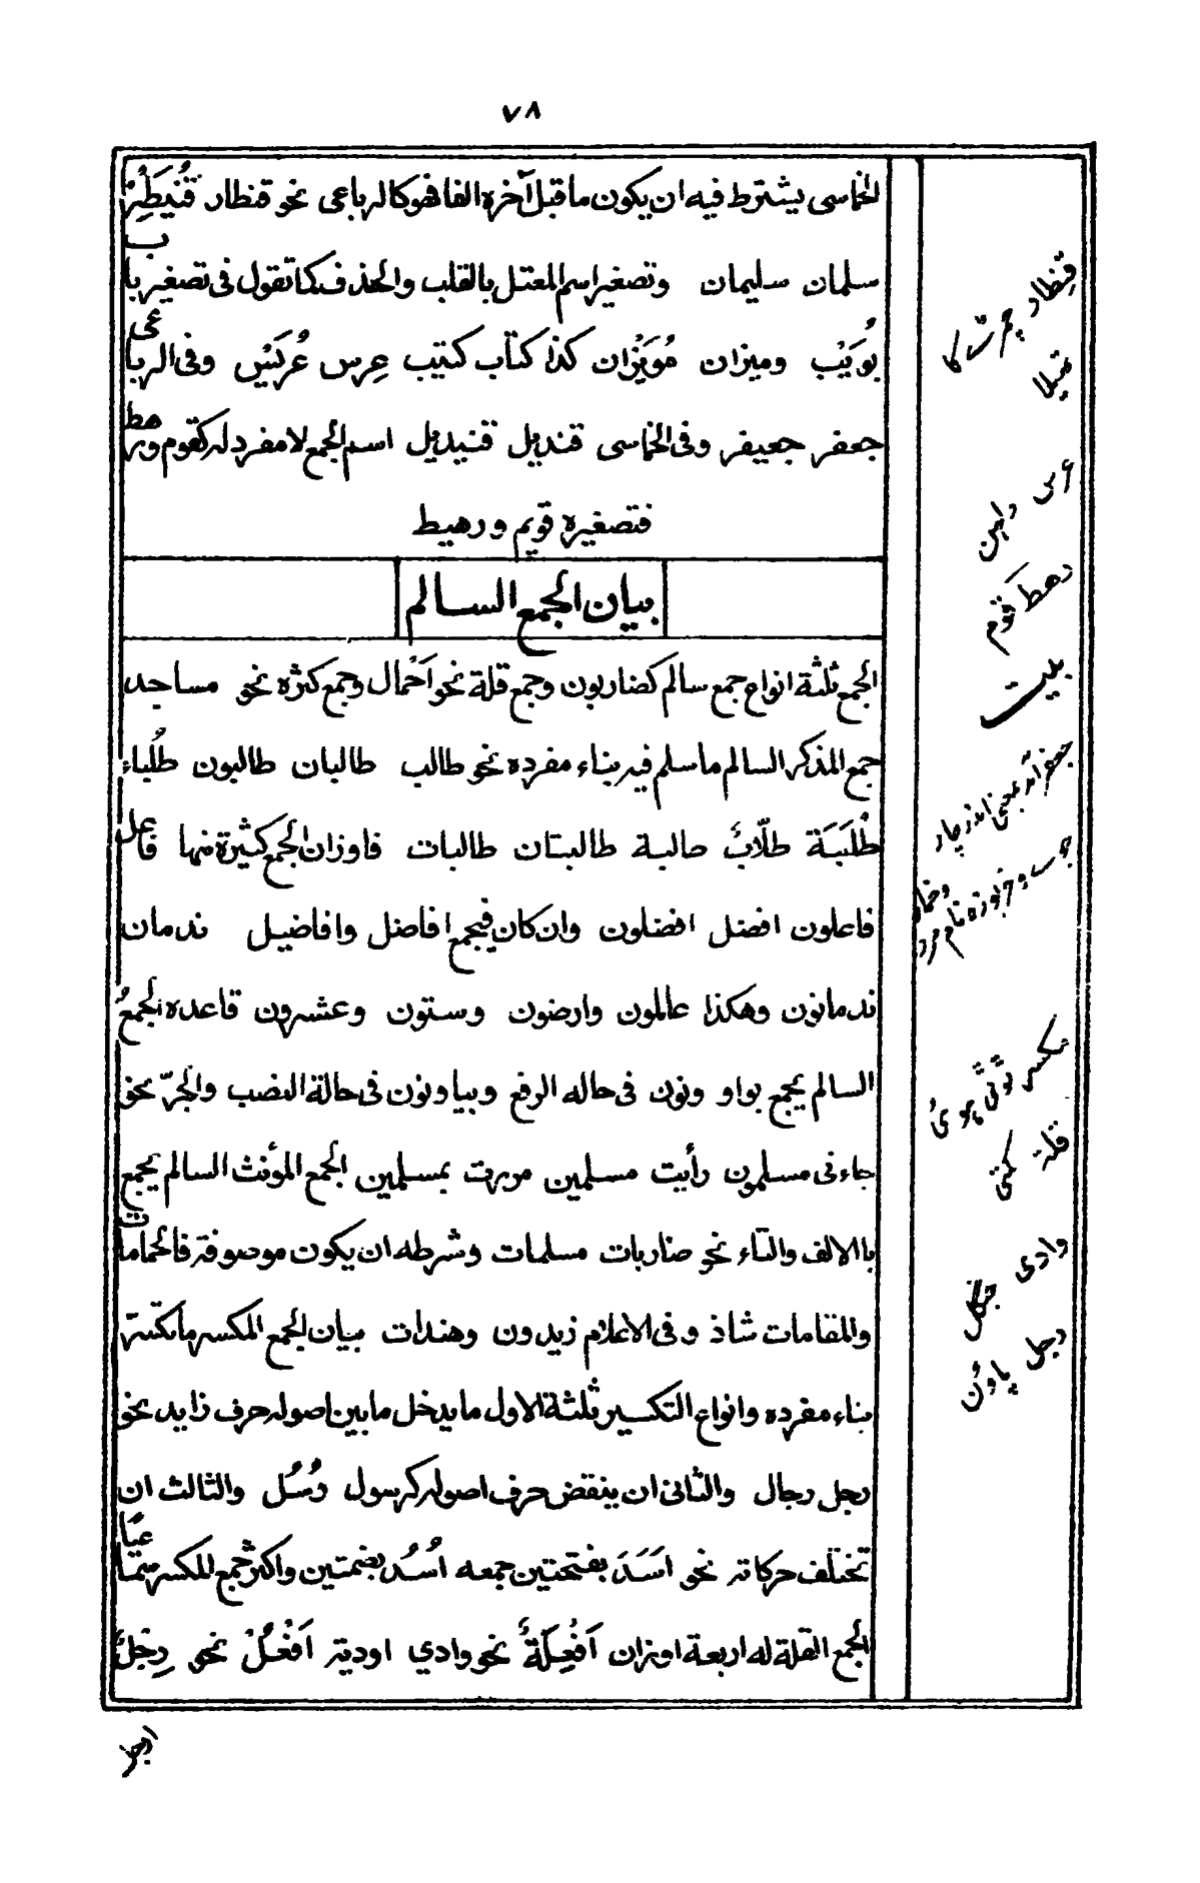 ٧٨
الخماسى يشترط فيه ان يكون ماقبل آخره الفا فهو كالرباعى نحو قنطار قُنَيطِرْ
سلمان سليمان وتصغير اسم المعتل بالقلب والحذف كما تقول فى تصغير باب
بُوَيْب وميزان مُوَيْزان كذا كتاب كتيب عِرس عُرَيْس وفى الرباعى
جعفر جعيفر وفى الخماسى قنديل قنيديل اسم الجمع لامفرد له كقوم ورهط
فتصغيره قويم ورهيط
بيان الجمع السالم
الجمع ثلثة انواع جمع سالم كضاربون وجمع قلة نحو اَحْمال وجمع كثره نحو مساجد
جمع المذكر السالم ماسلم فيه بناء مفرده نحو طالب طالبان طالبون طُلباء
طُلَبَة طلّابٌ طالبة طالبتان طالبات فاوزان الجمع كثيرة منها فاعل
فاعلون افضل افضلون وان كان فيجمع افاضل وافاضيل ندمان
ندمانون وهكذا عالمون وارضون وستون وعشرون قاعده الجمعُ
السالم يجمع بواو ونون فى حاله الرفع وبيا ونون فى حالة النصب والجرّ نحو
جاءنى مسلمون رأيت مسلمين مررت بمسلمين الجمع المؤنث السالم يجمع
باالالف والتاء نحو ضاربات مسلمات وشرطه ان يكون موصوفة فالحمامات
والمقامات شاذ وفى الاعلام زيدون وهندات بيان الجمع المكسر
بناء مفرده وانواع التكسير ثلثة الاول مايدخل مابين اصوله حرف زايد نحو
رجل رجال والثانى ان ينقض حرف اصوله كرسول رُسُل والثالث ان
تختلف حركاته نحو اَسَدَ بفتحتين جمعه اُسُد بضمتين واكثر جمع المكسر
الجمع القلة له اربعة اوزان اَفْعِلَةٌ نحو وادي اودية اَفْعُلْ نحو رِجْلٌ
قنطار
أس
رهط قوم
تكسر
قلة
وادى جنگل
رجل پاؤں
ارجل